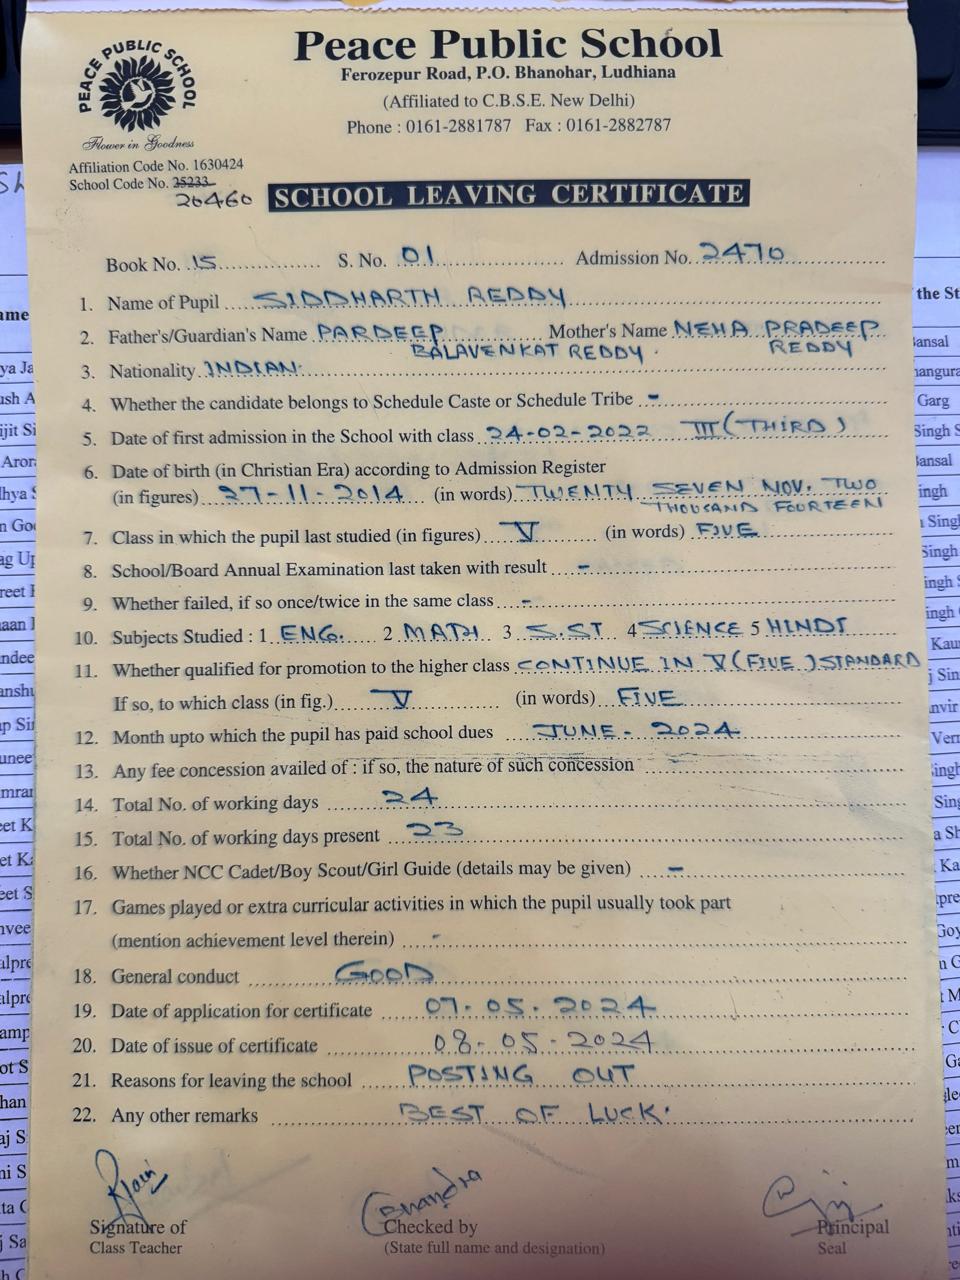 Peace Public School
Ferozepur Road, P.O. Bhanohar, Ludhiana
(Affiliated to C.B.S.E. New Delhi)
Phone : 0161-2881787 Fax : 0161-2882787
PEACE PUBLIC SCHOOL
Flower in Goodness
Affiliation Code No. 1630424
School Code No. 25233
20460
SCHOOL LEAVING CERTIFICATE
Book No. 15 S. No. 01 Admission No. 2470
1. Name of Pupil SIDDHARTH REDDY
2. Father's/Guardian's Name PARDEEP Mother's Name NEHA PRADEEP
BALAVENKAT REDDY. REDDY
3. Nationality INDIAN
4. Whether the candidate belongs to Schedule Caste or Schedule Tribe -
5. Date of first admission in the School with class 24-02-2022 III (THIRD)
6. Date of birth (in Christian Era) according to Admission Register
(in figures) 27-11-2014 (in words) TWENTY SEVEN NOV. TWO
THOUSAND FOURTEEN
7. Class in which the pupil last studied (in figures) V (in words) FIVE
8. School/Board Annual Examination last taken with result -
9. Whether failed, if so once/twice in the same class -
10. Subjects Studied : 1 ENG. 2 MATH 3 S.ST 4 SCIENCE 5 HINDI
11. Whether qualified for promotion to the higher class CONTINUE IN V (FIVE) STANDARD
If so, to which class (in fig.) V (in words) FIVE
12. Month upto which the pupil has paid school dues JUNE - 2024
13. Any fee concession availed of : if so, the nature of such concession -
14. Total No. of working days 24
15. Total No. of working days present 23
16. Whether NCC Cadet/Boy Scout/Girl Guide (details may be given) -
17. Games played or extra curricular activities in which the pupil usually took part
(mention achievement level therein) -
18. General conduct GOOD
19. Date of application for certificate 07-05-2024
20. Date of issue of certificate 08-05-2024
21. Reasons for leaving the school POSTING OUT
22. Any other remarks BEST OF LUCK.
Chandra
Signature of Checked by Principal
Class Teacher (State full name and designation) Seal
the St
Garg